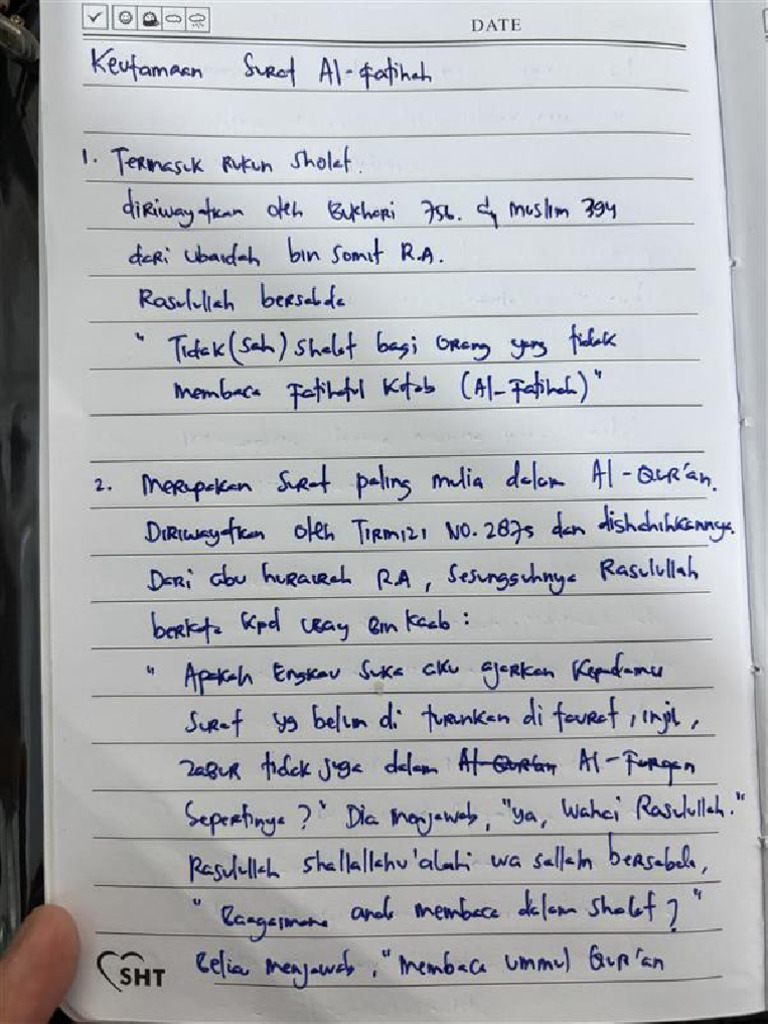 DATE
Keutamaan Surat Al-Fatihah
1. Termasuk Rukun Sholat.
diriwayatkan oleh Bukhori 756. dy Muslim 394
dari Ubaidah bin Somit R.A.
Rasulullah bersabda
" Tidak (Sah) Sholat bagi Orang yang tidak
membaca Fatihatul Kitab (Al-Fatihah)"
2. Merupakan Surat paling mulia dalam Al-Qur'an.
Diriwayatkan oleh Tirmizi No. 2875 dan dishahihkannya.
Dari abu hurairah RA, Sesungguhnya Rasulullah
berkata kpd Ubay Bin Kaab :
" Apakah Engkau Suka aku ajarkan Kepadamu
Surat yg belum di turunkan di taurat, injil,
zabur tidak juga dalam Al-Qur'an Al-Furqan
Sepertinya ?" Dia menjawab, "ya, Wahai Rasulullah."
Rasulullah shallallahu 'alahi wa sallam bersabda,
" Baagaimana anda membaca dalam Sholat ? "
Belia menjawab, "membaca ummul Qur'an
SHT